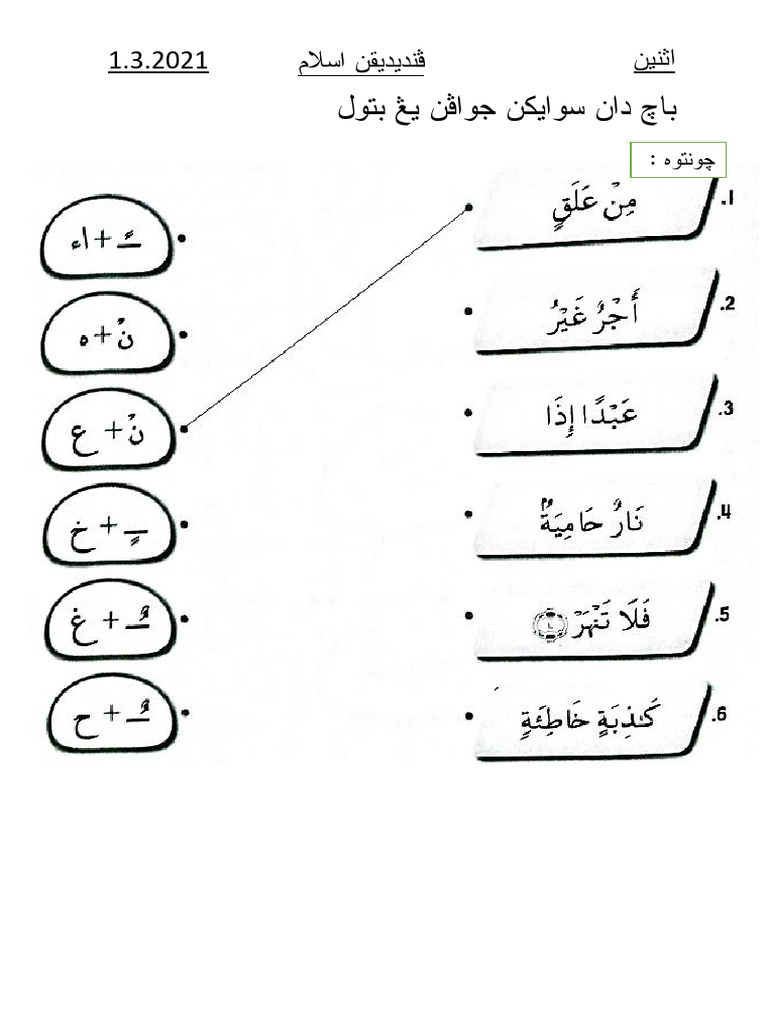 اثنين ڤنديديقن اسلام 1.3.2021
باچ دان سوايكن جواڤن يڠ بتول
چونتوه :
1. مِنْ عَلَقٍ
2. أَجْرٌ غَيْرُ
3. عَبْدًا إِذَا
4. نَارٌ حَامِيَةٌ
5. فَلَا تَنْهَرْ ۝١٠
6. كَـٰذِبَةٍ خَاطِئَةٍ
ـً + اء
نْ + ه
نْ + ع
ـٍ + خ
ـٌ + غ
ـٌ + ح